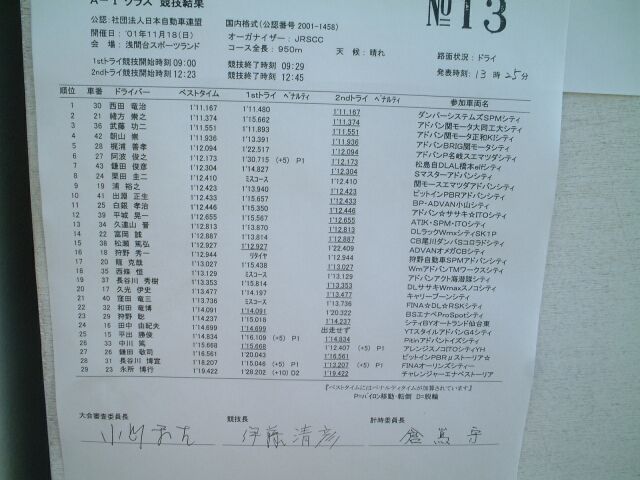 A-1 クラス 競技結果
№13
公認:社団法人日本自動車連盟 国内格式(公認番号 2001-1458)
開催日:'01年11月18(日) オーガナイザー:JRSCC
会 場:浅間台スポーツランド コース全長:950m 天 候:晴れ 路面状況:ドライ
1stトライ競技開始時刻 09:00 競技終了時刻 09:29 発表時刻:13時25分
2ndトライ競技開始時刻 12:23 競技終了時刻 12:45
順位 車番 ドライバー ベストタイム 1stトライ ペナルティ 2ndトライ ペナルティ 参加車両名
1 30 西田 竜治 1'11.167 1'11.480 1'11.167 ダンパーシステムズSPMシティ
2 21 緒方 崇之 1'11.374 1'15.662 1'11.374 アドバン関モータ大同工大シティ
3 36 武藤 功二 1'11.551 1'11.893 1'11.551 アドバン関モータ正和KIシティ
4 42 朝山 崇 1'11.936 1'13.391 1'11.936 アドバンBRIG関モータシティ
5 28 梶浦 善孝 1'12.094 1'22.517 1'12.094 アドバンP名岐スエマツダシティ
6 27 阿波 俊之 1'12.173 1'30.715 (+5) P1 1'12.173 松島自DLAL橋本elfシティ
7 43 鎌田 俊彦 1'12.304 1'14.827 1'12.304 Sマスターアドバンシティ
8 24 栗田 圭二 1'12.410 ミスコース 1'12.410 関モースエマツダアドバンシティ
9 19 浦 裕之 1'12.423 1'13.940 1'12.423 ピットインPBRアドバンシティ
10 41 出淵 正生 1'12.433 1'15.657 1'12.433 BP・ADVAN小山シティ
11 25 白銀 孝治 1'12.446 1'15.350 1'12.446 アドバン☆ササキ☆ITOシティ
12 39 平城 晃一 1'12.655 1'15.567 1'12.655 ATIK・SPM・ITOシティ
13 34 久連山 晋 1'12.813 1'13.870 1'12.813 DLラックWmxシティSK1P
14 22 富岡 誠 1'12.887 1'13.814 1'12.887 CB尾川ダンパSコロラドシティ
15 38 松瀬 篤弘 1'12.927 1'12.927 1'22.409 ADVANオメガCBシティ
16 18 狩野 秀一 1'12.944 リタイヤ 1'12.944 狩野自動車SPMアドバンシティ
17 20 龍 克哉 1'13.027 1'15.438 1'13.027 WmアドバンTMワークスシティ
18 35 西條 恒 1'13.129 ミスコース 1'13.129 アドバンアクト海潜隊シティ
19 37 長谷川 秀樹 1'13.353 1'15.814 1'13.353 DLササキWmaxスノコシティ
20 17 久光 伊史 1'13.477 1'14.197 1'13.477 キャリーブーンシティ
21 40 窪田 竜三 1'13.736 ミスコース 1'13.736 FINA☆DL☆RSKシティ
22 32 和田 竜博 1'14.091 1'14.091 1'20.322 BSエナペProSpotシティ
23 29 狩野 聡 1'14.237 1'15.018 1'14.237 シティBYオートランド仙台東
24 16 田中 由紀夫 1'14.699 1'14.699 出走せず YTスタイルアドバンG4シティ
25 15 平出 勝俊 1'14.834 1'16.109 (+5) P1 1'14.834 PitinアドバントイズシティI
26 33 中川 篤 1'15.668 1'15.668 1'12.407 (+5) P1 アレンジスノコITOシティYH
27 26 鎌田 敬司 1'16.561 1'20.043 1'16.561 ビットインPBRμストーリア☆
28 31 長谷川 博宣 1'18.207 1'15.046 (+5) P1 1'13.207 (+5) P1 FINAオーリンズシティー
29 23 永所 博行 1'19.422 1'28.202 (+10) O2 1'19.422 チャレンジャーエナペストーリア
『ベストタイムにはペナルティタイムが加算されています』
P=パイロン移動・転倒 D=脱輪
大会審査委員長 競技長 計時委員長
伊藤清彦